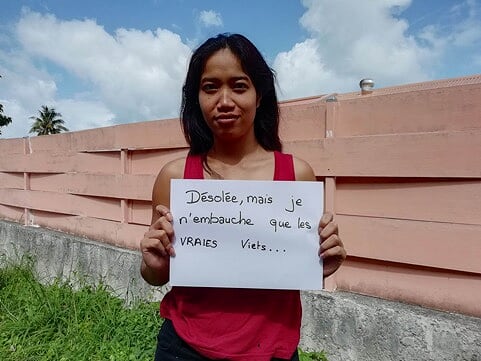 Désolée, mais je
n'embauche que les
VRAIES Viets...